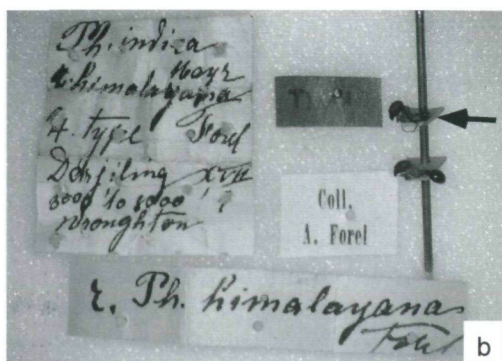 Ph. indica
Mayr
r. himalayana
☿. type Forel
Darjiling
3000' to 8000'
Wroughton
TYPUS
Coll.
A. Forel
r. Ph. himalayana
Forel
b